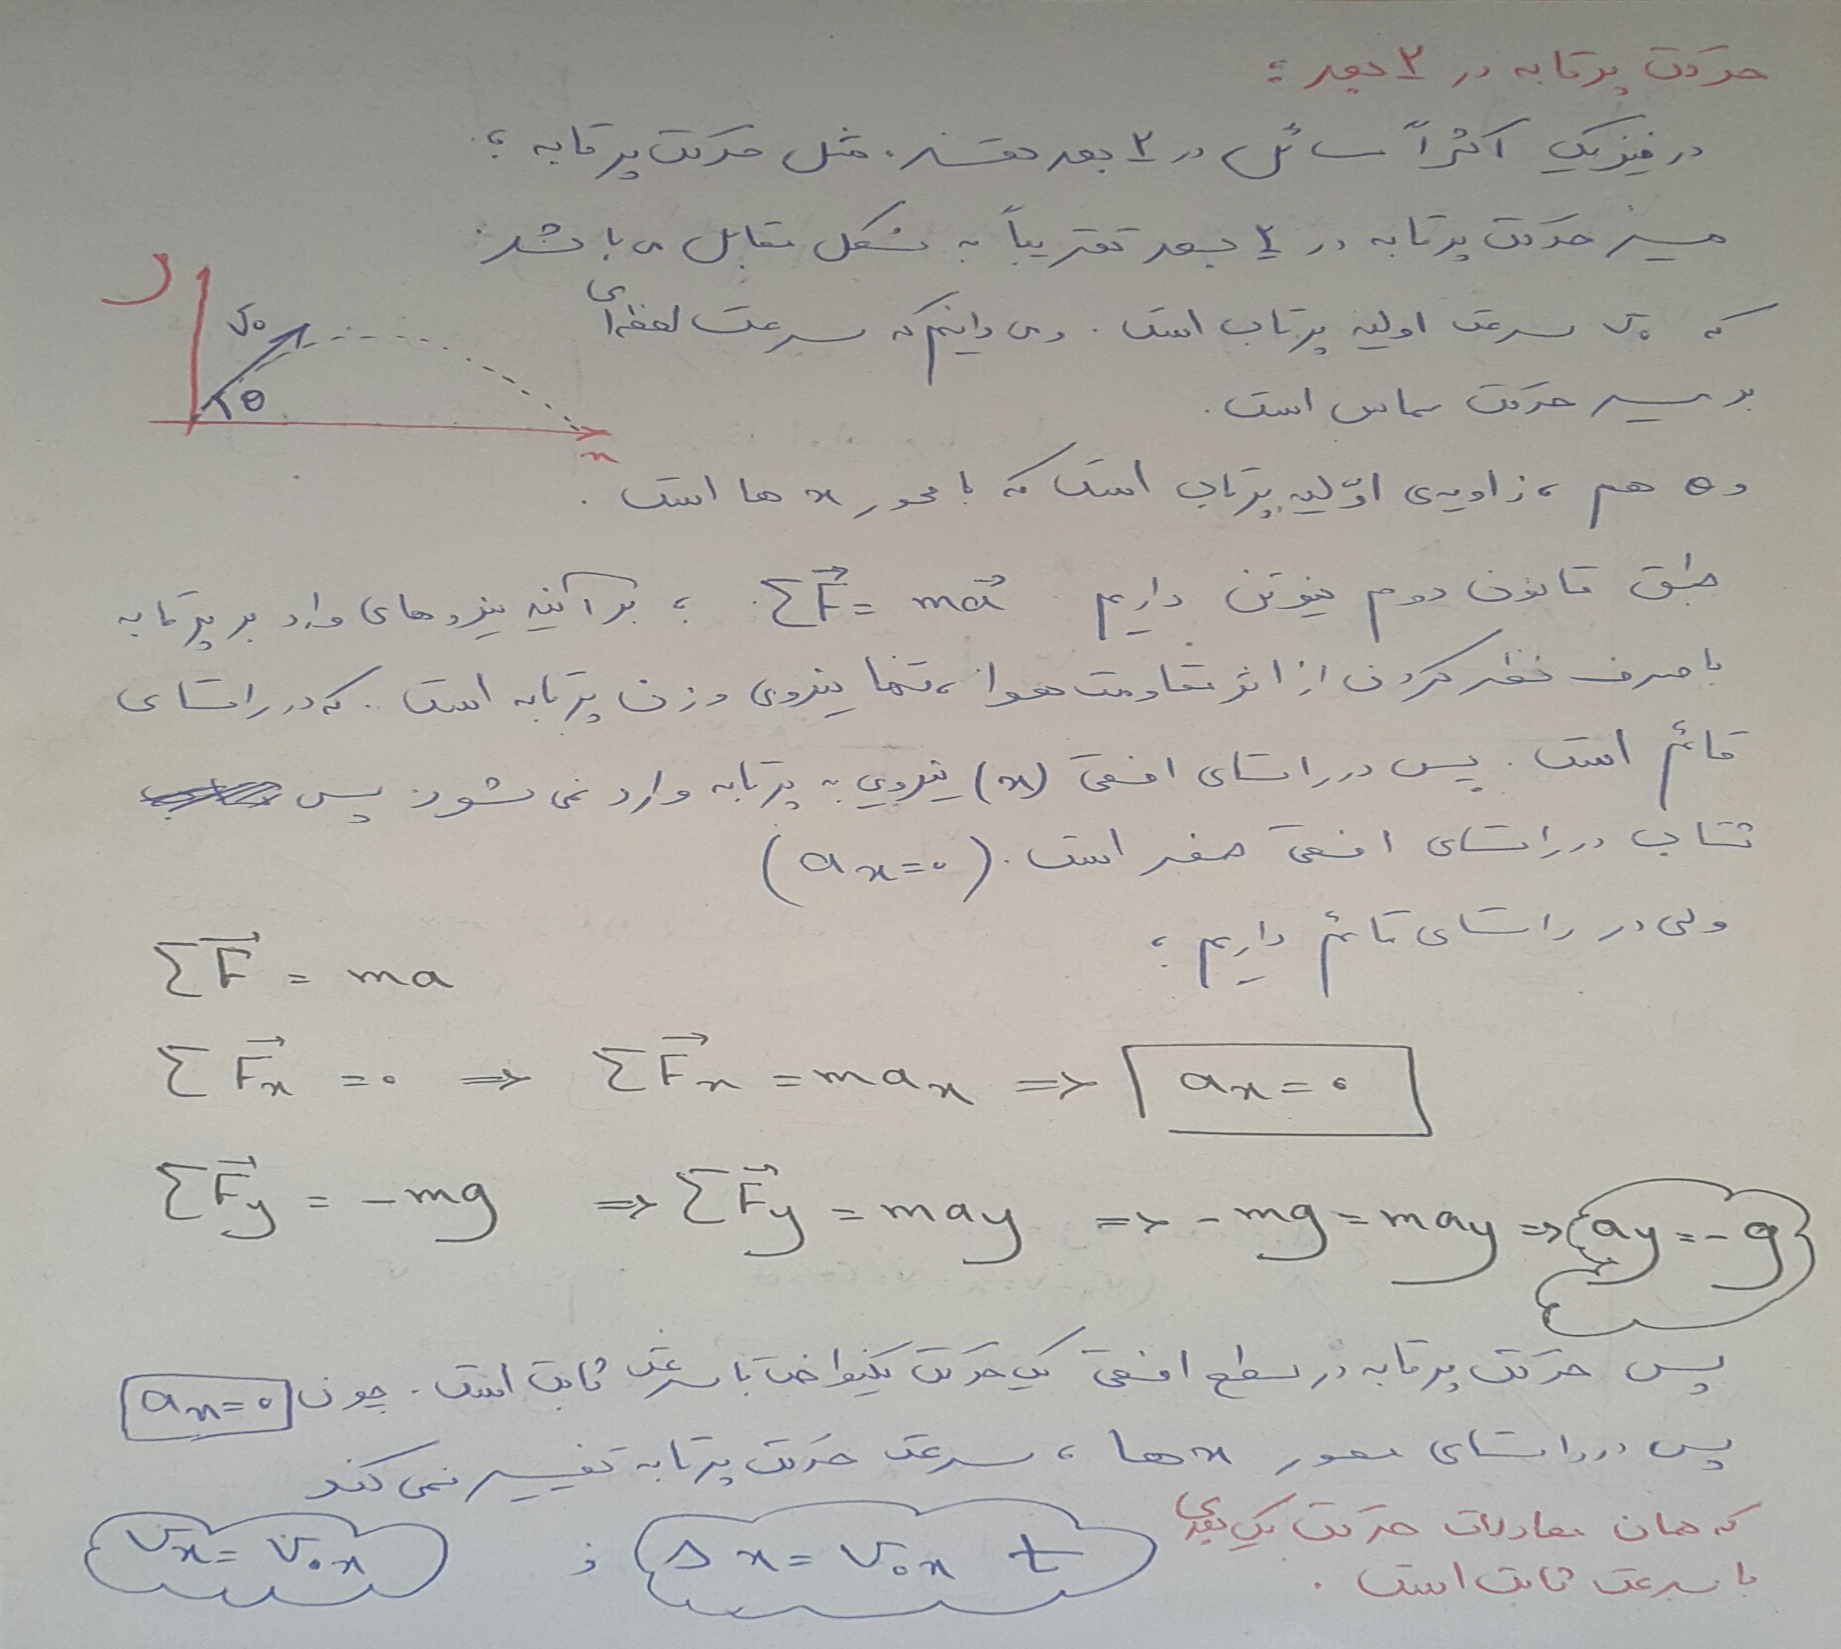 حرکت پرتابه در ۲ بعد :
در فیزیک اکثراً مسائل در ۲ بعد هستند، مثل حرکت پرتابه ؛
مسیر حرکت پرتابه در ۲ بعد تقریباً به شکل مقابل می باشد.
y
v₀
θ
x
که v₀ سرعت اولیه پرتاب است. و می دانیم که سرعت لحظه ای
بر مسیر حرکت مماس است.
و θ هم، زاویه ی اوّلیه پرتاب است که با محور x ها است.
طبق قانون دوم نیوتن داریم ΣF⃗ = ma⃗ ؛ برآیند نیروهای وارد بر پرتابه
با صرف نظر کردن از اثر مقاومت هوا، تنها نیروی وزن پرتابه است. که در راستای
قائم است. پس در راستای افقی (x) نیرویی به پرتابه وارد نمی شود. پس
شتاب در راستای افقی صفر است. (aₓ=۰)
ولی در راستای قائم داریم ؛
ΣF⃗ = ma
ΣF⃗ₓ = ۰ ⇒ ΣF⃗ₓ = maₓ ⇒ aₓ = ۰
ΣF⃗y = -mg ⇒ ΣF⃗y = may ⇒ -mg = may ⇒ ay = -g
پس حرکت پرتابه در سطح افقی یک حرکت یکنواخت با سرعت ثابت است. چون aₓ=۰
پس در راستای محور xها، سرعت حرکت پرتابه تغییر نمی کند
که همان معادلات حرکت یک بعدی
با سرعت ثابت است.
Δx = v₀ₓ t و vₓ = v₀ₓ